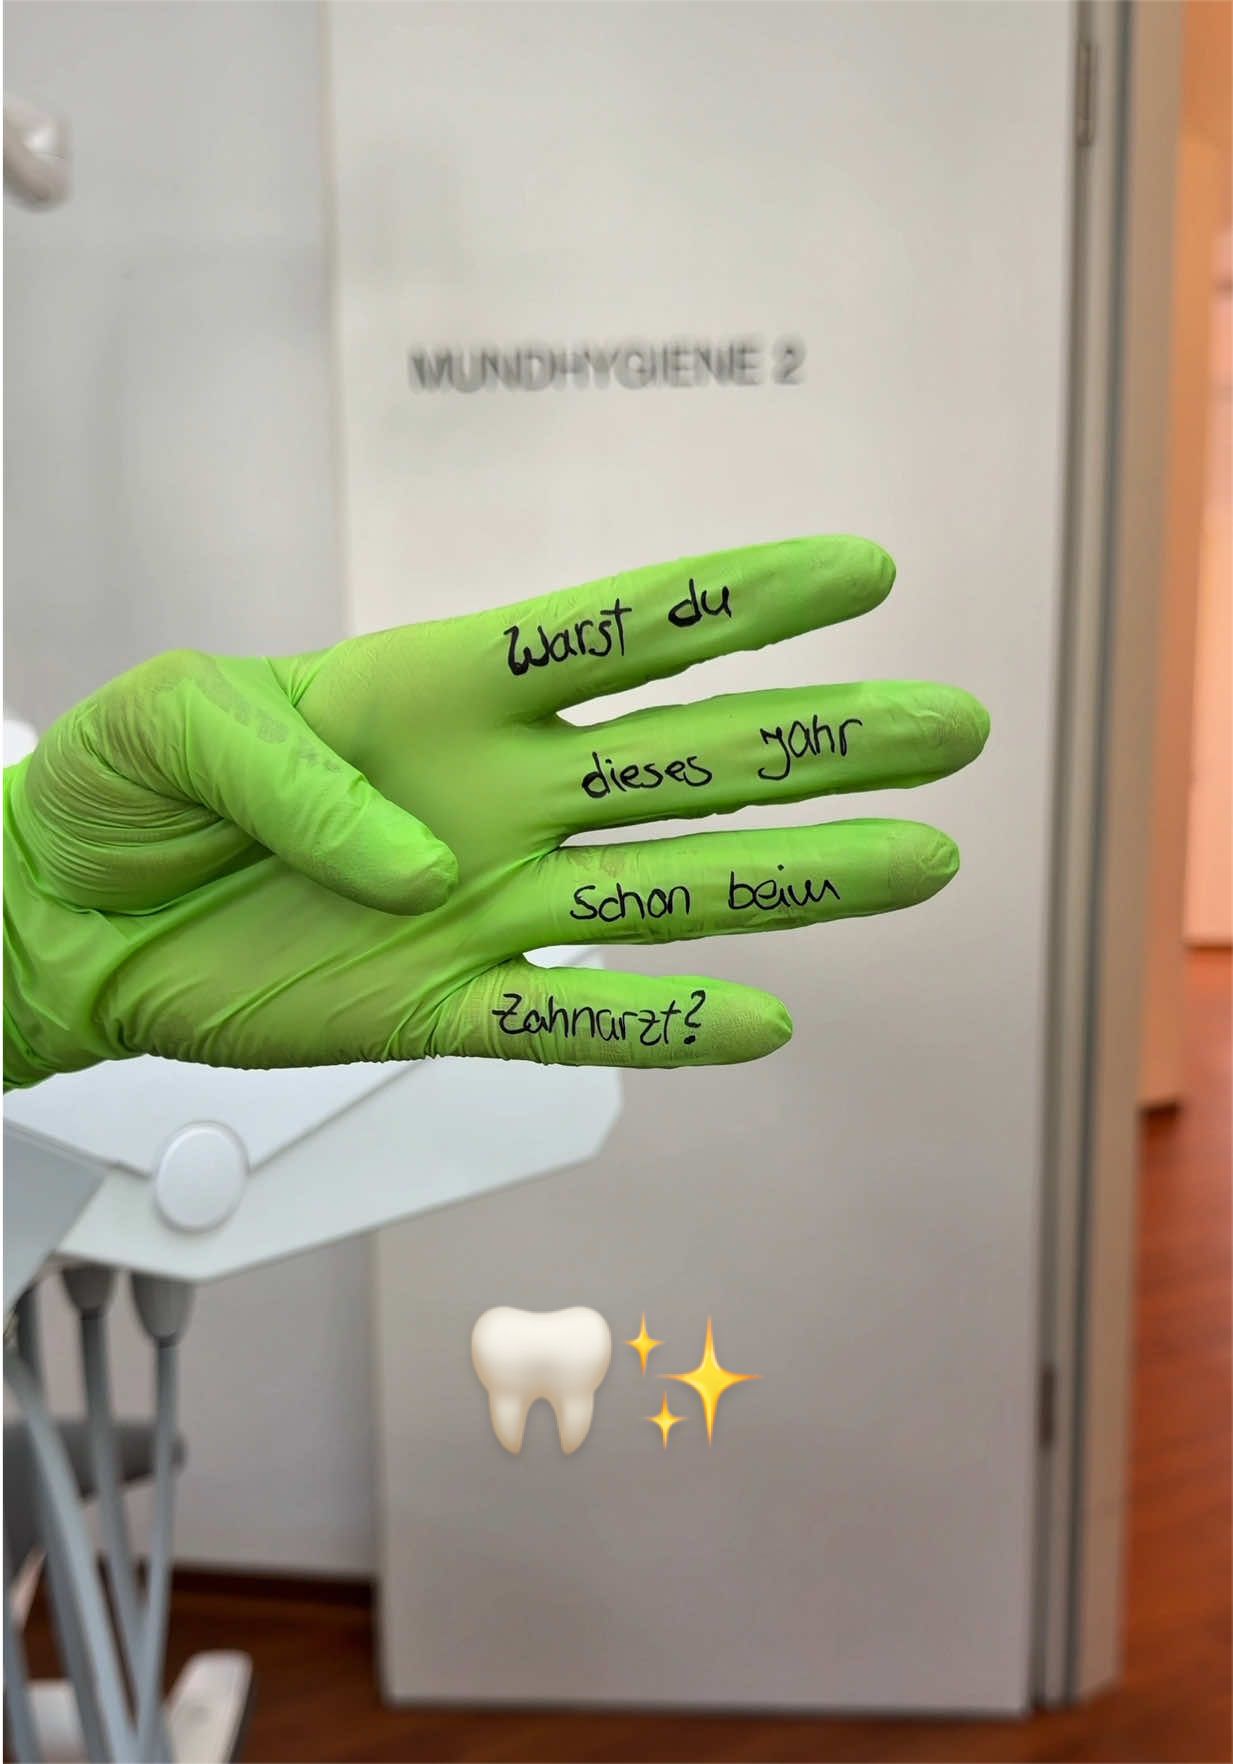 MUNDHYGIENE 2
Warst du
dieses Jahr
schon beim
Zahnarzt?